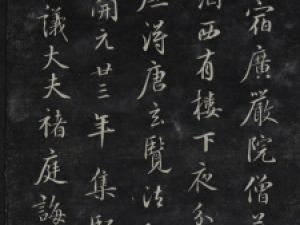 宿廣嚴院僧
西有樓下夜
得唐玄覽法
開元廿三年集賢
議大夫褚庭誨